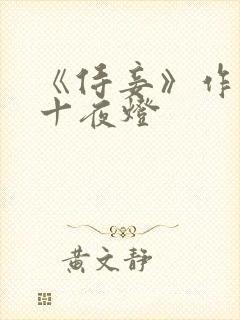 《侍妾》作
十夜燈
黄文静